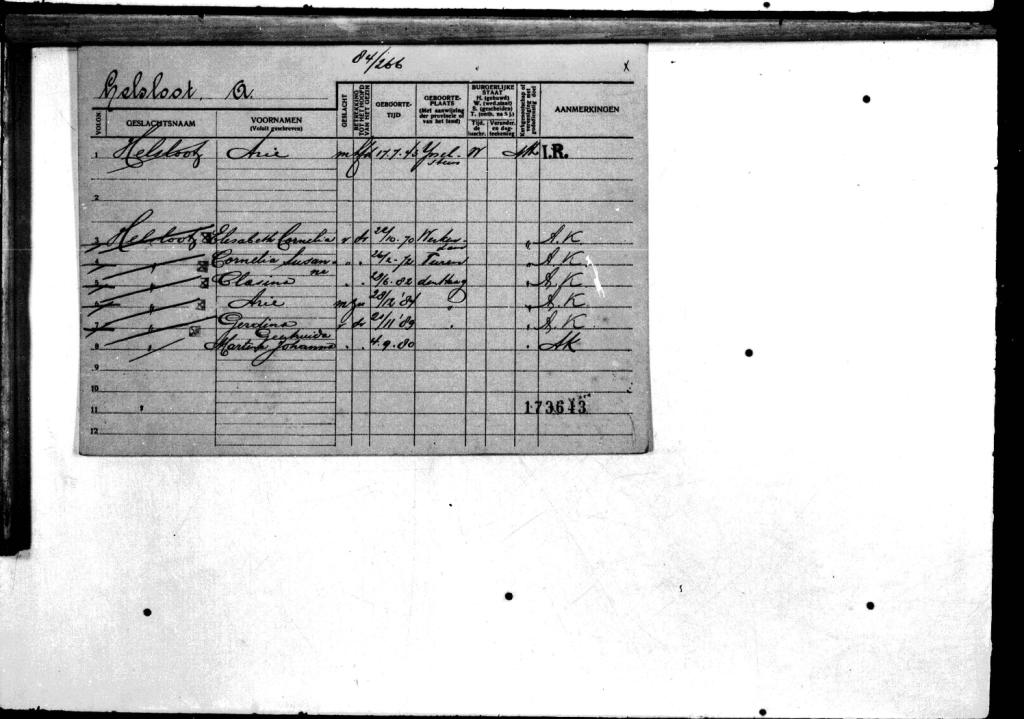 84/266 x
Helsloot. A.
VOLGN.
GESLACHTSNAAM
VOORNAMEN
(Voluit geschreven)
GESLACHT
BETREKKING TOT HET HOOFD VAN HET GEZIN
GEBOORTE-
TIJD
GEBOORTE-
PLAATS
(Met aanwijzing
der provincie of
van het land)
BURGERLIJKE
STAAT
H. (gehuwd)
W. (wed.staat)
S. (gescheiden)
T. (ontb. na S.)
Tijd.
de
inschr.
Verander.
en dag-
teekening
AANMERKINGEN
1 Helslootz Arie m hfd 17.7.43 Ysselstein W NH I.R.
2
3 Helslootz Elisabeth Cornelia v dr 22/10.70 A.K.
4 " Cornelia Susanne " " A.K.
5 " Clasina " " 29/6.82 den Haag " A.K.
6 " Arie m zn 28/12'84 " " A.K.
7 " Gerdina v dr 21/11'89 " " A.K.
8 " Geertruida
Johanna " " 4.9.80 " AK
9
10
11 173643
12